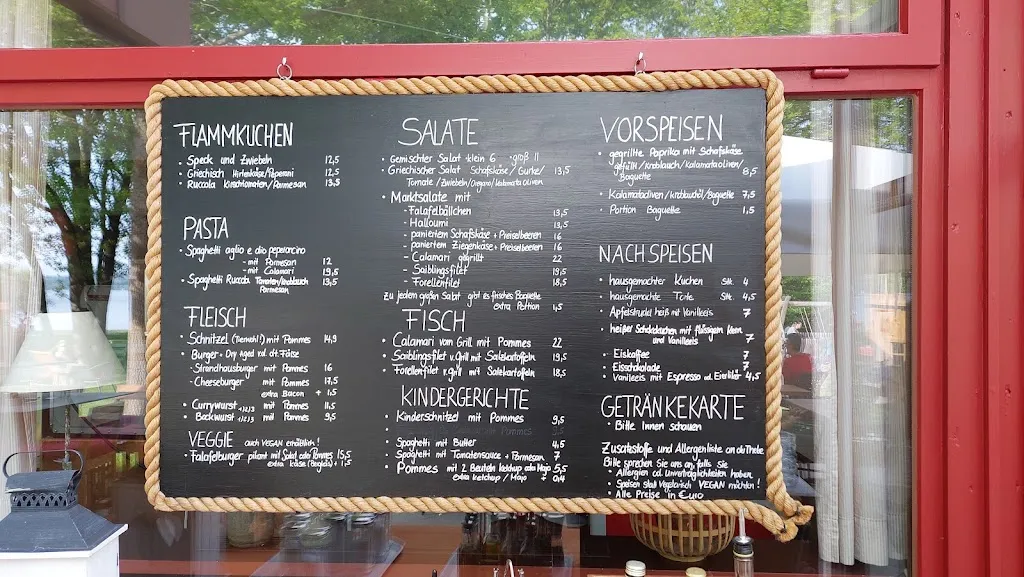 FLAMMKUCHEN
• Speck und Zwiebeln 12,5
• Griechisch Hirtenkäse/Peperoni 12,5
• Ruccola Kirschtomaten/Parmesan 13,5
PASTA
• Spaghetti aglio e olio peperoncino
- mit Parmesan 12
- mit Calamari 19,5
• Spaghetti Ruccola Tomaten/Knoblauch 13,5
Parmesan
FLEISCH
• Schnitzel mit Pommes 14,9
• Burger - Dry Aged
- Strandhausburger mit Pommes 16
- Cheeseburger mit Pommes 17,5
extra Bacon + 1,5
• Currywurst mit Pommes 11,5
• Bockwurst mit Pommes 9,5
VEGGIE auch VEGAN erhältlich!
• Falafelburger pikant mit Salat oder Pommes 15,5
extra Käse + 1,5
SALATE
• Gemischter Salat • klein 6 • groß 11
• Griechischer Salat Schafskäse/Gurke/ 13,5
Tomate/Zwiebeln/Oregano/Kalamata oliven
• Marktsalate mit
- Falafelbällchen 13,5
- Halloumi 13,5
- paniertem Schafskäse + Preiselbeeren 16
- paniertem Ziegenkäse + Preiselbeeren 16
- Calamari gegrillt 22
- Saiblingsfilet 19,5
- Forellenfilet 18,5
Zu jedem großen Salat gibt es frisches Baguette
extra Portion 1,5
FISCH
• Calamari vom Grill mit Pommes 22
• Saiblingsfilet v. Grill mit Salzkartoffeln 19,5
• Forellenfilet v. grill mit Salzkartoffeln 18,5
KINDERGERICHTE
• Kinderschnitzel mit Pommes 9,5
• Spaghetti mit Butter 4,5
• Spaghetti mit Tomatensauce + Parmesan 7
• Pommes mit 2 Beuteln Ketchup oder Mayo 5,5
extra Ketchup / Mayo + 0,4
VORSPEISEN
• gegrillte Paprika mit Schafskäse
gefüllt/Knoblauch/Kalamataoliven/
Baguette 8,5
• Kalamataoliven/Knoblauchöl/Baguette 7,5
• Portion Baguette 1,5
NACHSPEISEN
• hausgemachter Kuchen Stk. 4
• hausgemachte Torte Stk. 4,5
• Apfelstrudel heiß mit Vanilleeis 7
• heißer Schokokuchen mit flüssigem Kern
und Vanilleeis 7
• Eiskaffee 7
• Eisschokolade 7
• Vanilleeis mit Espresso od. Eierlikör 4,5
GETRÄNKEKARTE
• Bitte Innen schauen
Zusatzstoffe und Allergenliste an der Theke
Bitte sprechen Sie uns an, falls Sie
• Allergien od. Unverträglichkeiten haben
• Speisen statt Vegetarisch VEGAN möchten!
• Alle Preise in €uro